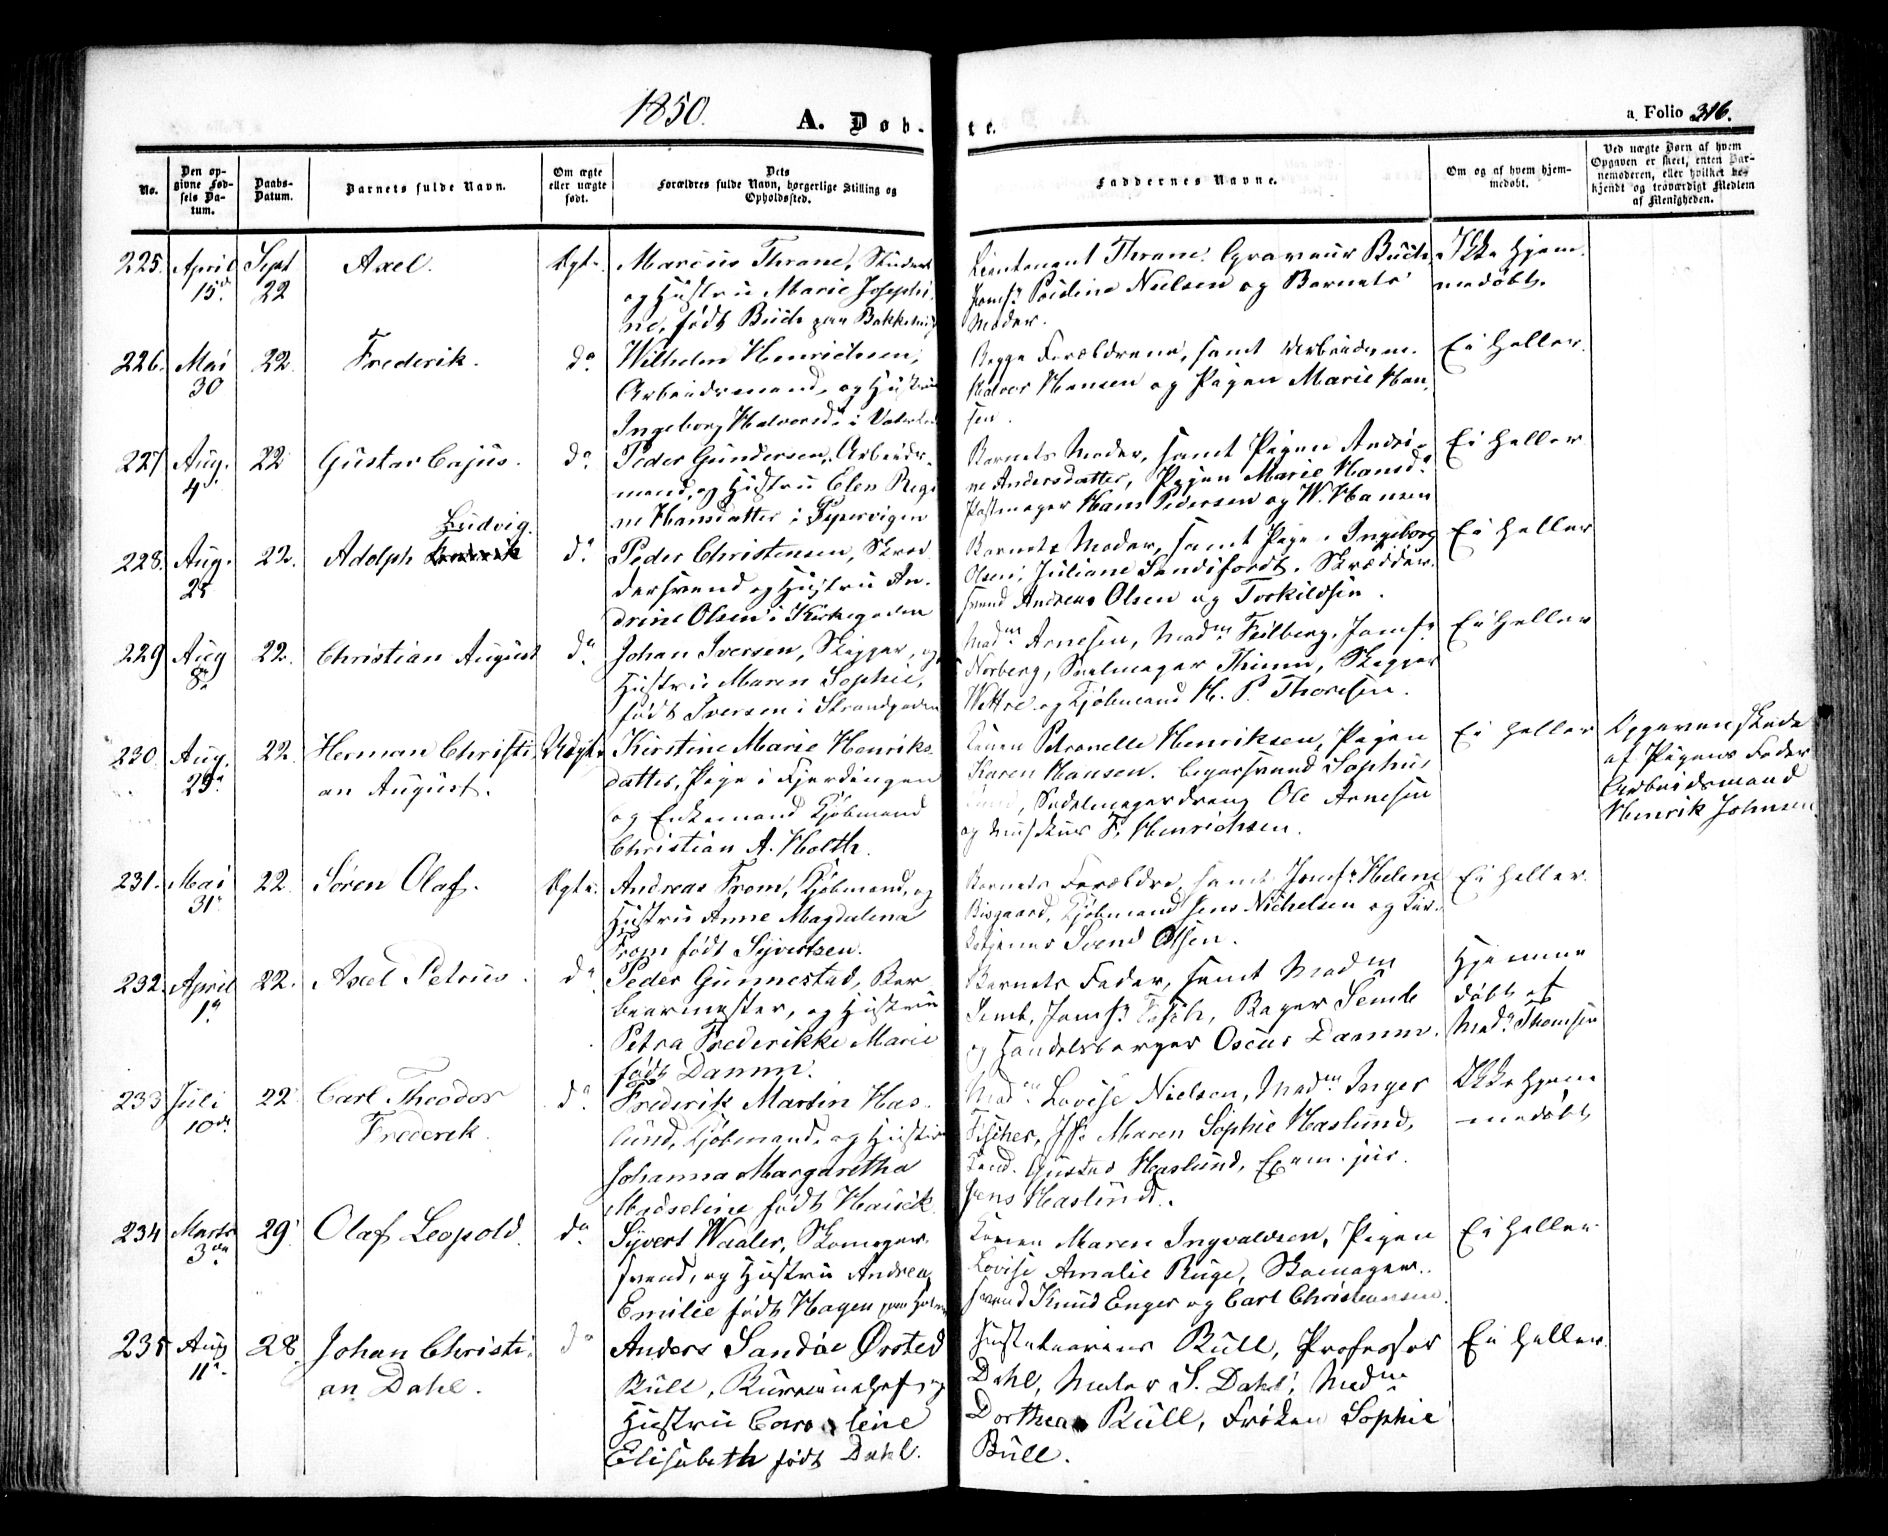 1850.
A. Døb-
te.
a. Folio 316.
No.
Den op-
givne Fød-
sels Da-
tum.
Daabs-
Datum.
Barnets fulde Navn.
Om ægte
eller uægte
født.
Dets
Forældres fulde Navn, borgerlige Stilling og
Opholdssted.
Faddernes Navne.
Om og af hvem hjem-
medøbt.
Ved uægte Børn af hvem
Opgaven er skeet, enten Bar-
nemoderen, eller hvilket be-
kjendt og troværdigt Medlem
af Menigheden.
225. April 15de Sept 22 Axel. Ægte.
Marcus Thrane, Student
og Hustru Marie Josephi-
ne, født Buch paa
Lieutenant Thrane, Graveur Buch,
Jomfr Poidine Nielsen og Barnets
Moder.
Ikke hjem-
medøbt.
226. Mai 30 22. Frederik. do
Wilhelm Henrichsen,
Arbeidsmand, og Hustru
Ingeborg Halvorsd. i
Begge Forældrene, samt Arbeidsm.
Halvor Hansen og Pigen Marie Han-
sen.
Ei heller.
227 Aug. 4 22 Gustav Cajus. do
Peder Gundersen, Arbeids-
mand, og Hustru Elen Regi-
ne Hansdatter i Pipervigen
Barnets Moder, samt Pigen Andri-
ne Andersdatter, Pigen Marie Hansd.
Postmager Hans Pedersen og W. Hansen
Ei heller
228. Aug. 25 22. Adolph Ludvig. do
Peder Christensen, Skræd-
dersvend og Hustru An-
drine Olsen i Kirkegaden
Barnets Moder, samt Pige Ingeborg
Olsen, Juliane Sandsfordt. Skrædder-
svend Andreas Olsen og Torkildsen.
Ei heller
229 Aug 8de 22. Christian August do
Johan Iversen, Skipper, og
Hustru Maren Sophie,
født Iversen i Strandgaden
Madm Arnesen, Madm Feilberg, Jomfr
Norberg, Seilmager Thime, Skipper
Wettre og Kjøbmand H. P. Thoresen.
Ei heller
230. Aug. 29de 22. Herman Christi-
an August. Uægte
Kirstine Marie Henriks-
datter, Pige i Fjerdingen
og Enkemand Kjøbmand
Christian A. Holth.
Konen Petronelle Henriksen, Pigen
Karen Hansen. Bogersvend Sophus
Sadelmagerdreng Ole Arnesen
og Musikus F. Henrichsen.
Ei heller
Opgaven skede
af Pigens Fader
Arbeidsmand
Henrik Johnsen
231. Mai 31te 22. Søren Olaf. Ægte.
Andreas From, Kjøbmand, og
Hustru Anne Magdalena
From født Syvertsen.
Barnets Forældre, samt Jomfr Helene
Bisgaard, Kjøbmand Jens Nichelsen og Kir-
ketjener Svend Olsen.
Ei heller.
232. April 1te 22. Axel Petrus. do
Peder Gunnestad, Bar-
beermester, og Hustru
Petra Frederikke Marie
født Damm.
Barnets Fader, samt Madm
Semb, Jomfr Fasch, Bager Semb
og Handelsborger Oscar Damm.
Hjemme
døbt af
Mad. Thomsen
233 Juli 10de 22. Carl Theodor
Frederik. do
Frederik Martin Has-
lund, Kjøbmand, og Hustru
Johanna Margaretha
Madseline født Hauck.
Madm Lovise Nielsen, Madm Inger
Fischer, Jfr Maren Sophie Haslund,
Cand. Gustav Haslund, Exam. jur.
Jens Haslund.
Ikke hjem-
medøbt
234 Marts 3die 29. Olaf Leopold. do
Syvert Waaler, Skomager-
svend, og Hustru Andrea
Emilie født Hagen paa
Konen Maren Ingvaldsen, Pigen
Lovise Amalie Ruge, Skomager-
svend Knud Enger og Carl Christiansen.
Ei heller
235 Aug 11te 28. Johan Christi-
an Dahl. do
Anders Sandøe Ørsted
Bull, Bureauchef, og
Hustru Caroline
Elisabeth født Dahl.
Justitiarius Bull, Professor
Dahl, Maler S. Dahl, Madm
Dorthea Bull, Frøken Sophie
Bull.
Ei heller.